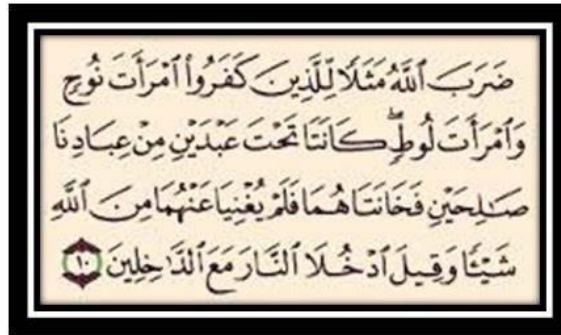 ضَرَبَ ٱللَّهُ مَثَلًا لِّلَّذِينَ كَفَرُوا۟ ٱمْرَأَتَ نُوحٍ
وَٱمْرَأَتَ لُوطٍۖ كَانَتَا تَحْتَ عَبْدَيْنِ مِنْ عِبَادِنَا
صَـٰلِحَيْنِ فَخَانَتَاهُمَا فَلَمْ يُغْنِيَا عَنْهُمَا مِنَ ٱللَّهِ
شَيْـًٔا وَقِيلَ ٱدْخُلَا ٱلنَّارَ مَعَ ٱلدَّٰخِلِينَ ١٠